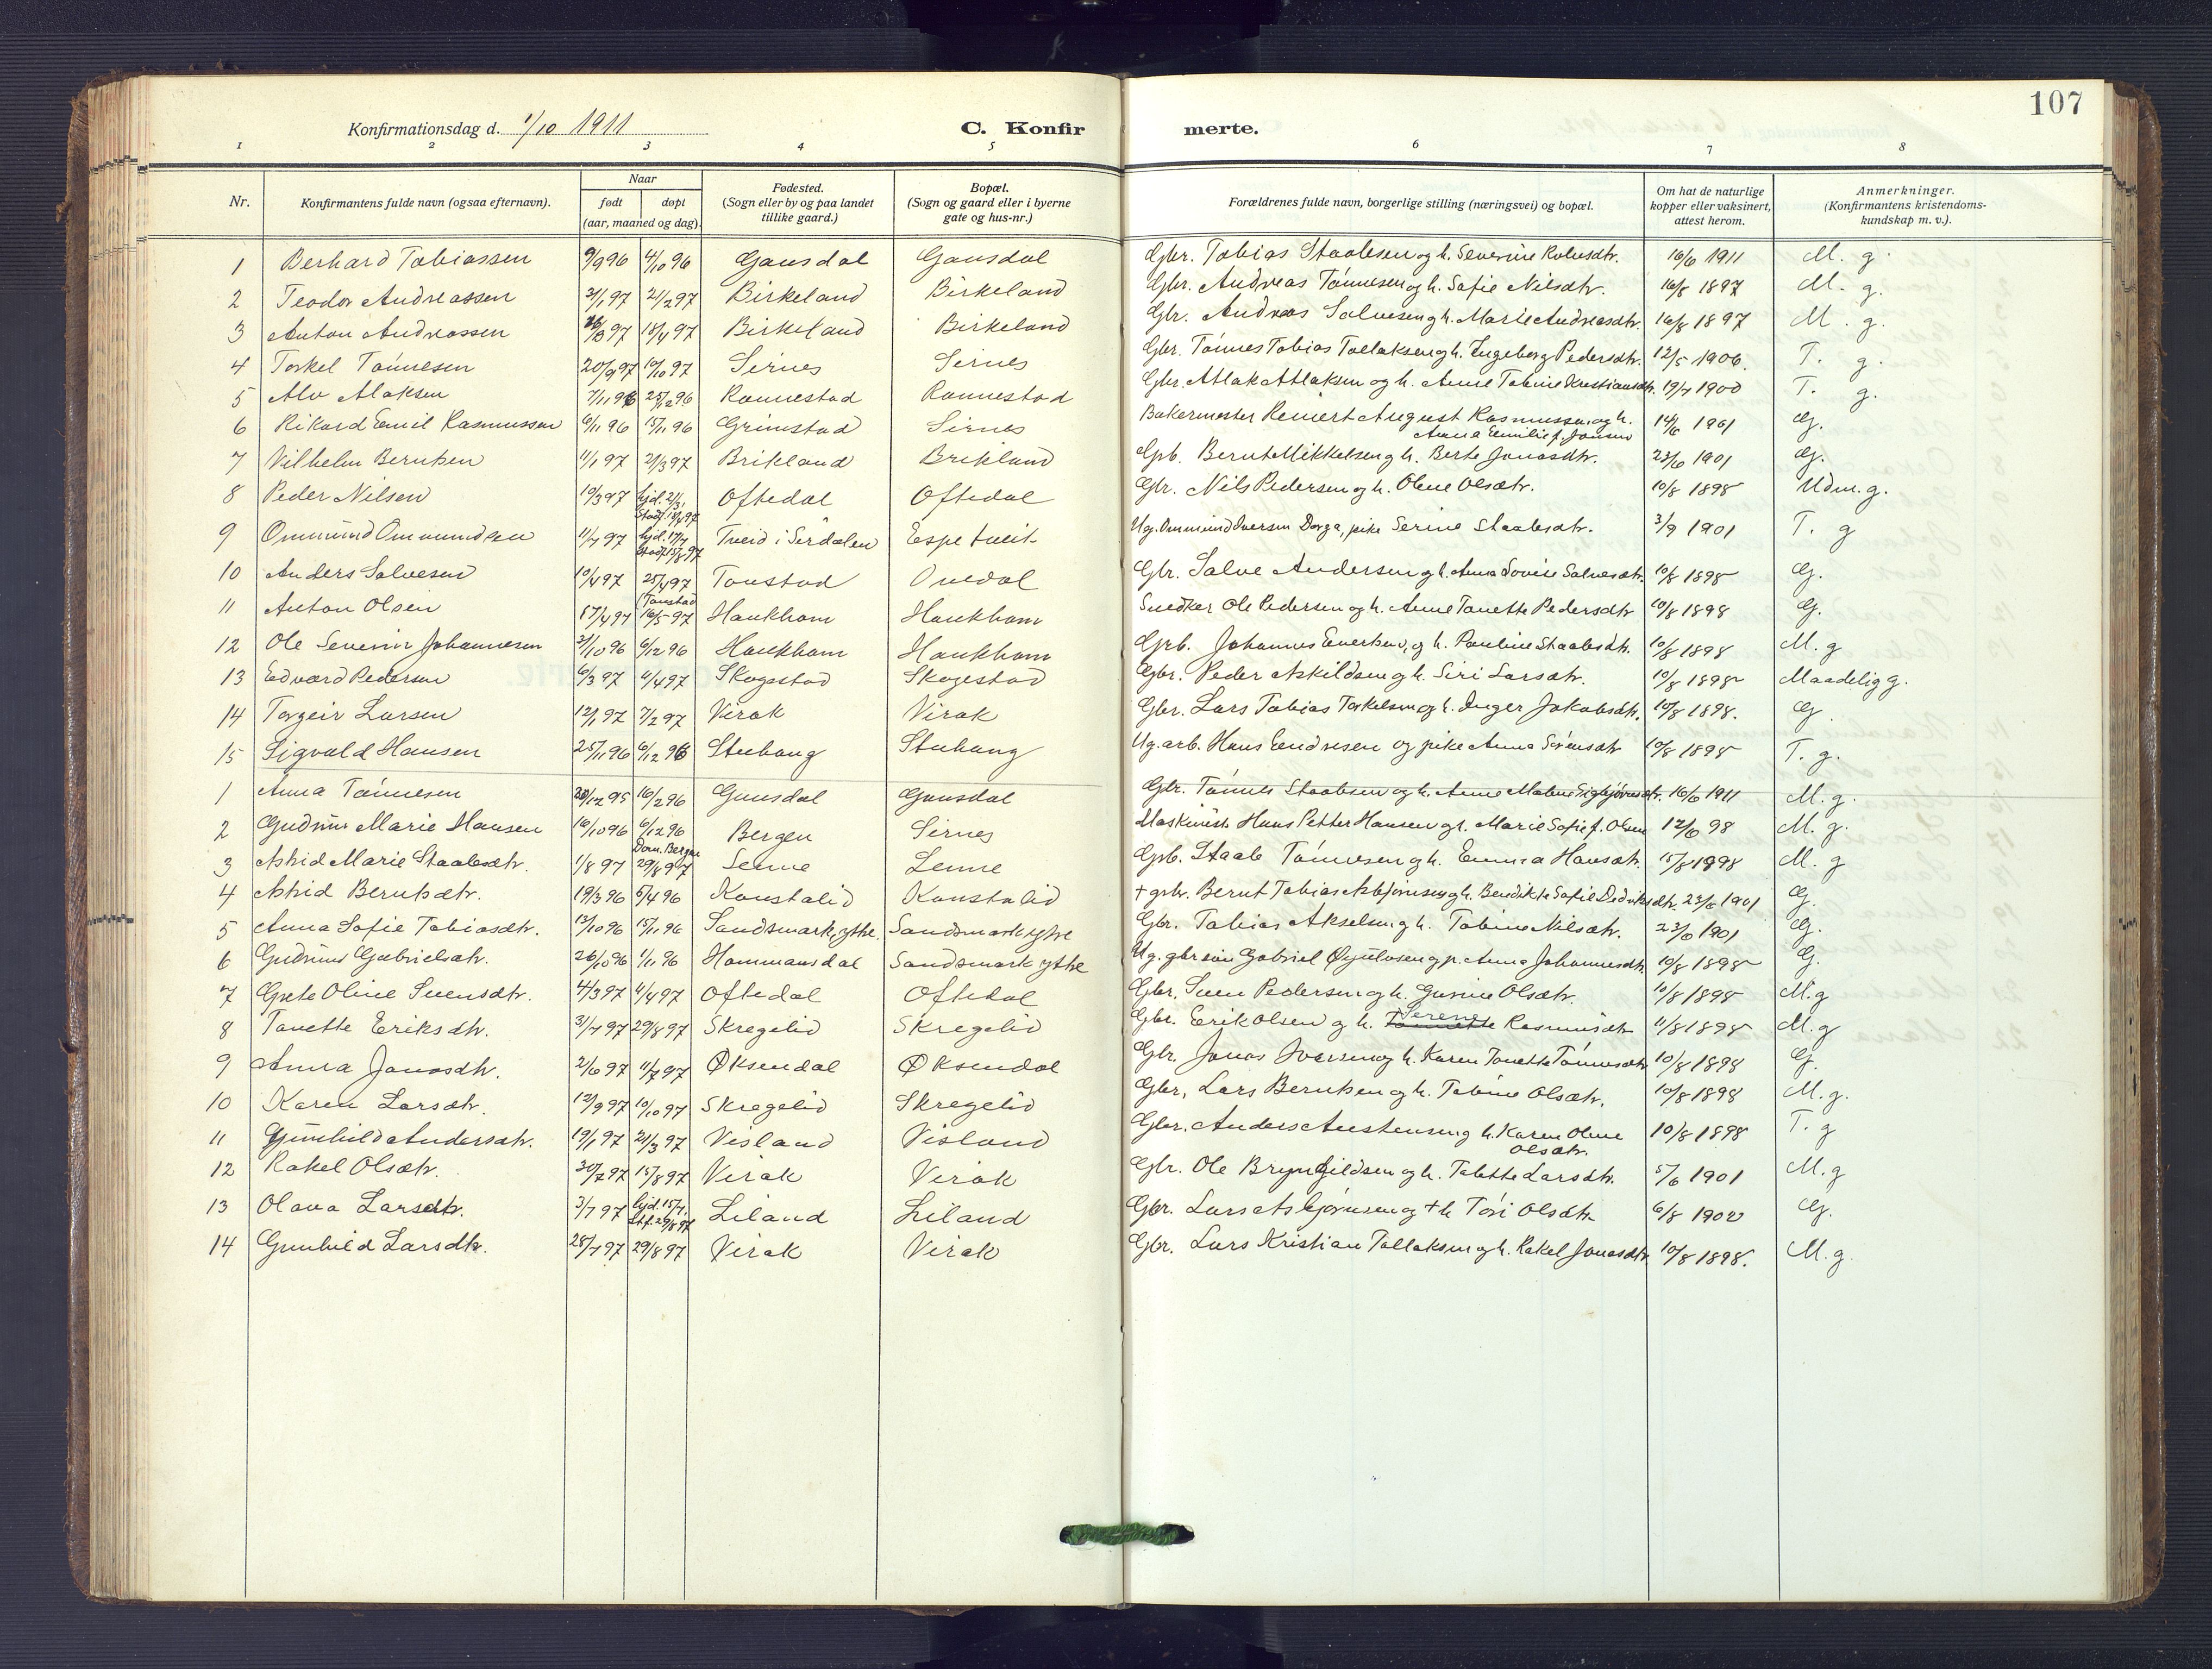 107
Konfirmationsdag d. 1/10 1911 C. Konfirmerte.
1 2 3 4 5 6 7 8
Nr. Konfirmantens fulde navn (ogsaa efternavn). Naar født døpt (aar, maaned og dag). Fødested. (Sogn eller by og paa landet tillike gaard.) Bopæl. (Sogn og gaard eller i byerne gate og hus-nr.) Forældrenes fulde navn, borgerlige stilling (næringsvei) og bopæl. Om hat de naturlige kopper eller vaksinert, attest herom. Anmerkninger. (Konfirmantens kristendomskundskap m. v.).
1 Berhard Tobiassen 9/9 96 4/10 96 Gausdal Gausdal Gbr. Tobias Staalesen og h. Severine 16/6 1911 M. g.
2 Teodor Andreassen 31/1 97 21/2 97 Birkeland Birkeland Gbr. Andreas Tønnesen og h. Sofie Nilsdtr. 16/8 1897 M. g.
3 Anton Andreassen 97 18/4 97 Birkeland Birkeland Gbr. Andreas Salvesen og h. Marie Andreasdtr. 16/8 1897 M. g.
4 Torkel Tønnesen 20/9 97 10/10 97 Sirnes Sirnes Gbr. Tønnes Tobias Tollaksen og h. Ingeborg Pedersdtr. 12/5 1906. T. g.
5 Alv Alaksen 7/11 96 25/12 96 Rannestad Rannestad Gbr. Atlak Atlaksen og h. Anne Tobine Kristiansdtr. 19/7 1900 T. g.
6 Rikard Emil Rasmussen 6/11 96 15/11 96 Grimstad Sirnes Bakermester Reinert August Rasmussen og h. 14/6 1901 G.
Anna Emilie f. Jonsen
7 Vilhelm Berntsen 11/1 97 21/3 97 Brikland Brikland Gpb. Bernt Mikkelsen og h. Berte Jonasdtr. 23/6 1901 G.
8 Peder Nilsen 10/3 97 hjd. 21/3, Oftedal Oftedal Gbr. Nils Pedersen og h. Oline Olsdtr. 10/8 1898 Udm. g.
Stadf. 18/4 97
9 Ommund Ommundsen 11/7 97 hjd. 17/7 Tveid i Sirdalen Espetveit Ug. Ommund Iversen Dorga, pike Serine Staalesdtr. 3/9 1901 T. g
Stadf. 15/8 97
10 Anders Salvesen 10/4 97 25/4 97 Tonstad Ovedal Gbr. Salve Andersen og h. Anna Lovise Salvesdtr. 10/8 1898 G.
(Tonstad
11 Anton Olsen 17/4 97 16/5 97 Haukham Haukham Snedker Ole Pedersen og h. Anne Tonette Pedersdtr 10/8 1898 G.
12 Ole Severin Johannesen 31/10 96 6/12 96 Haukham Haukham Gpb. Johannes Evertsen, og h. Pauline Staalesdtr. 10/8 1898 M. g
13 Edvard Pedersen 6/3 97 4/4 97 Skogestad Skogestad Gbr. Peder Askildsen og h. Siri Larsdtr. 10/8 1898 Maadelig g.
14 Torgeir Larsen 12/1 97 7/2 97 Virak Virak Gbr. Lars Tobias Torkelsen og h. Inger Jakobsdtr. 10/8 1898. G.
15 Sigvald Hansen 25/11 96 6/12 96 Stuhaug Stuhaug Ug. arb. Hans Endresen og pike Anna Sørensdtr 10/8 1898 T. g.
1 Anna Tønnesen 20/12 95 16/2 96 Gausdal Gausdal Gbr. Tønnes Staalesen og h. Anne Malene Sigbjørnsdtr. 16/6 1911 M. g.
2 Gudrun Marie Hansen 16/10 96 6/12 96 Bergen Sirnes Maskinist Hans Petter Hansen og h. Marie Sofie f. Olsen 12/6 98 M. g.
Dom. Bergen
3 Astrid Marie Staalesdtr. 1/8 97 29/8 97 Lenne Lenne Gpb. Staale Tønnesen og h. Emma Hansdtr. 15/8 1898 M. g
4 Astrid Berntsdtr. 19/3 96 5/4 96 Konstalid Konstalid + gbr. Bernt Tobias Asbjørnsen og h. Bendikte Sofie Dediksdtr. 23/6 1901 G.
5 Anna Sofie Tobiasdtr. 13/10 96 15/11 96 Sandsmark, ytre. Sandsmark ytre Gbr. Tobias Akselsen og h. Tobine Nilsdtr. 23/6 1901 G.
6 Gudrun Gabrielsdtr. 26/10 96 1/11 96 Hammansdal Sandsmark ytre Ug. gbr søn Gabriel Øyulvsen og p. Anna Johannesdtr 10/8 1898 G.
7 Grete Oline Svensdtr. 4/3 97 4/4 97 Oftedal Oftedal Gbr. Sven Pedersen og h. Gurine Olsdtr. 10/8 1898 M. g
8 Tanette Eriksdtr. 31/7 97 29/8 97 Skregelid Skregelid Gbr. Erik Olsen og h. Serene Rasmusdtr 11/8 1898 M. g
9 Anna Jonasdtr. 2/6 97 11/7 97 Øksendal Øksendal Gbr. Jonas Iversen og h. Karen Tonette Tønnesdtr 10/8 1898 G.
10 Karen Larsdtr. 12/9 97 10/10 97 Skregelid Skregelid Gbr. Lars Berntsen og h. Tobine Olsdtr. 10/8 1898 M. g.
11 Gunhild Andersdtr. 19/1 97 21/3 97 Visland Visland Gbr. Anders Austensen og h. Karen Oline 10/8 1898 T. g
Olsdtr.
12 Rakel Olsdtr. 30/7 97 15/8 97 Virak Virak Gbr. Ole Brynjildsen og h. Talette Larsdtr. 5/6 1901 M. g
13 Olava Larsdtr. 3/7 97 hjd. 15/7, Liland Liland Gbr. Lars Asbjørnsen og + h Tori Olsdtr. 6/8 1902 G.
Stf. 29/8 97
14 Gunhild Larsdtr. 28/7 97 29/8 97 Virak Virak Gbr. Lars Kristian Tollaksen og h. Rakel Jonasdtr. 10/8 1898. M. g.